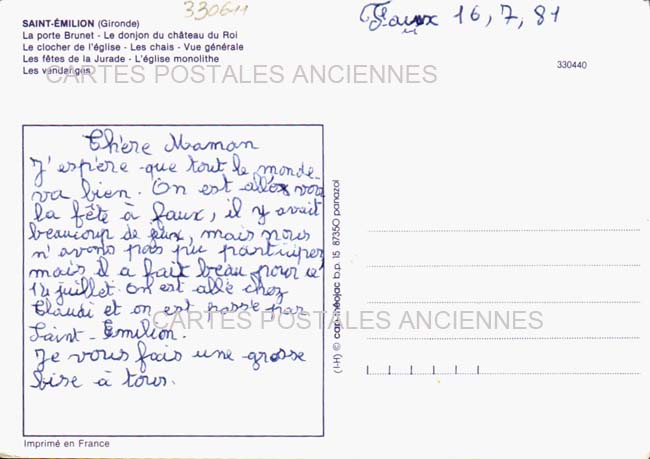 330611
Faux 16, 7, 81
SAINT-ÉMILION (Gironde)
La porte Brunet - Le donjon du château du Roi
Le clocher de l'église - Les chais - Vue générale
Les fêtes de la Jurade - L'église monolithe
Les vendanges
330440
CARTES POSTALES ANCIENNES
Chère Maman
J'espère que tout le monde
va bien. On est allés voir
la fête à faux, il y avait
beaucoup de jeux, mais nous
n'avons pas pu participer
mais il a fait beau pour le
14 juillet. On est allé chez
Claudi et on est passé par
Saint-Emilion.
Je vous fais une grosse
bise à tous.
CARTES POSTALES ANCIENNES
(I-H) © cap-théojac b.p. 15 87350 panazol
Imprimé en France